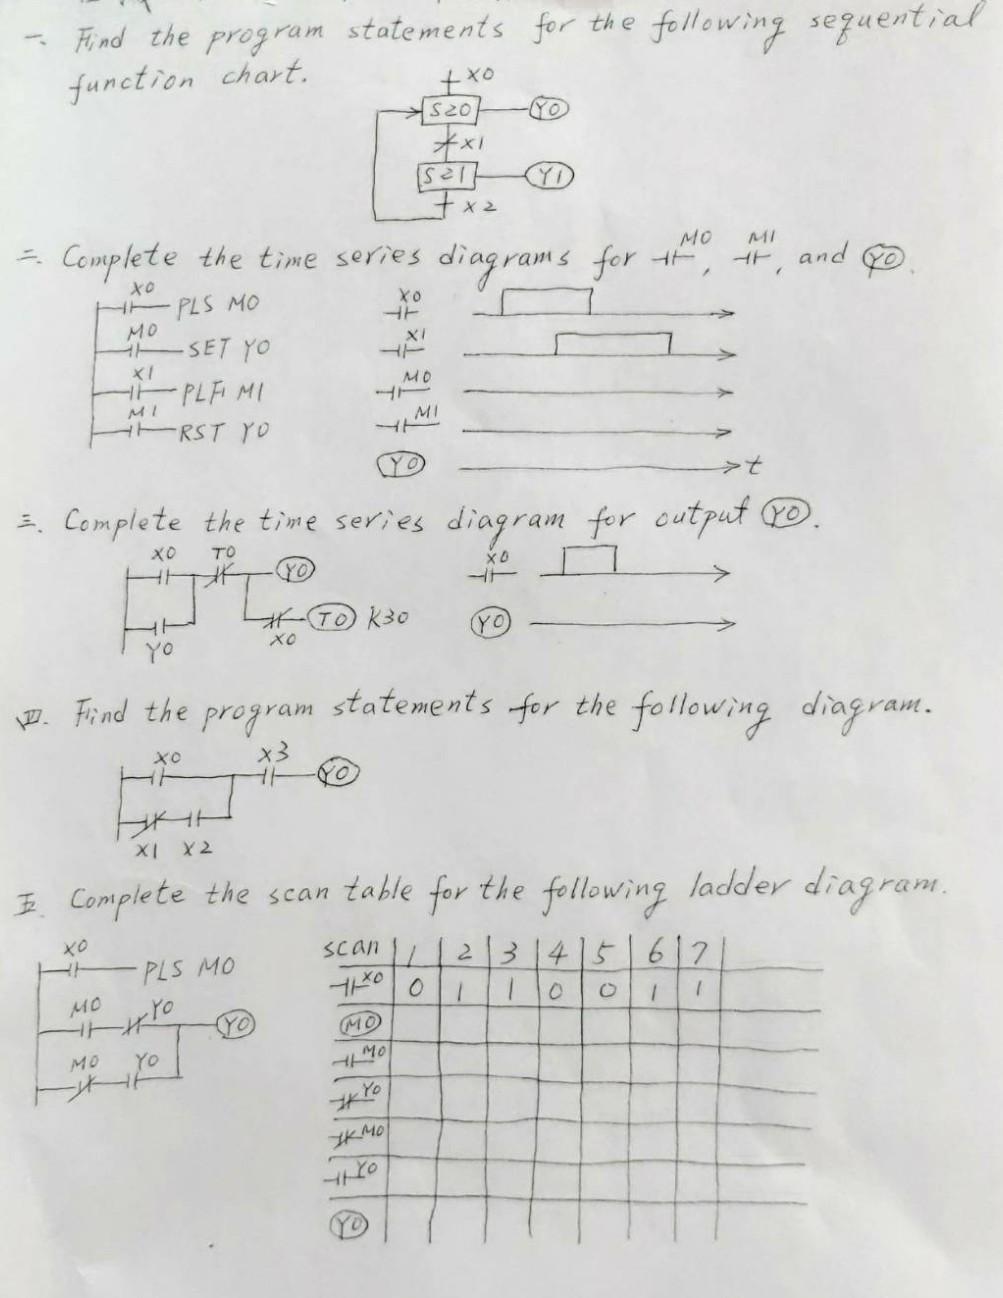 一. Find the program statements for the following sequential
function chart.
X0
S20 Y0
X1
S21 Y1
X2
二. Complete the time series diagrams for M0, M1, and Y0.
X0
PLS M0
M0
SET Y0
X1
PLF M1
M1
RST Y0
X0
X1
M0
M1
Y0 t
三. Complete the time series diagram for output Y0.
X0 T0
Y0
T0 K30
X0
Y0
X0
Y0
四. Find the program statements for the following diagram.
X0 X3
Y0
X1 X2
五. Complete the scan table for the following ladder diagram.
X0
PLS M0
M0 Y0
Y0
M0 Y0
scan 1 2 3 4 5 6 7
X0 0 1 1 0 0 1 1
M0
M0
Y0
M0
Y0
Y0